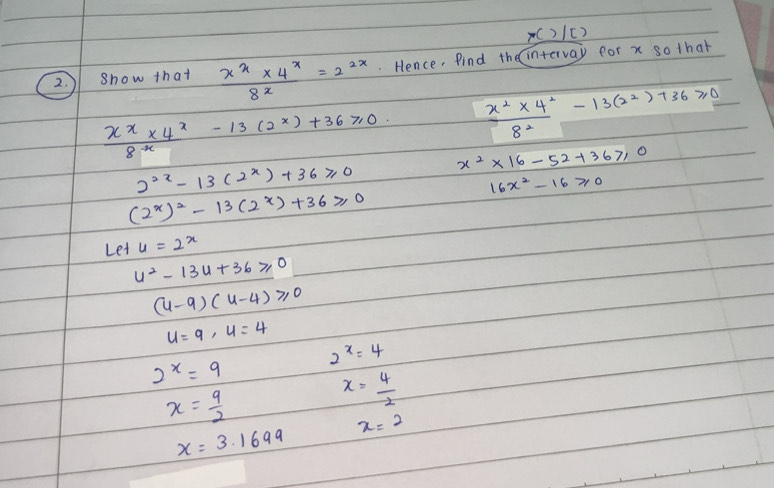 *( ) / [ ]
2. Show that (x^x × 4^x)/8^x = 2^2x. Hence, find the interval for x so that
(x^x × 4^x)/8^x - 13(2^x) + 36 ≥ 0.
2^2x - 13(2^x) + 36 ≥ 0
(2^x)^2 - 13(2^x) + 36 ≥ 0
Let u = 2^x
u^2 - 13u + 36 ≥ 0
(u-9)(u-4) ≥ 0
u = 9, u = 4
2^x = 9
x = 9/2
x = 3.1699
2^x = 4
x = 4/2
x = 2
(x^2 × 4^2)/8^2 - 13(2^2) + 36 ≥ 0
x^2 × 16 - 52 + 36 ≥ 0
16x^2 - 16 ≥ 0